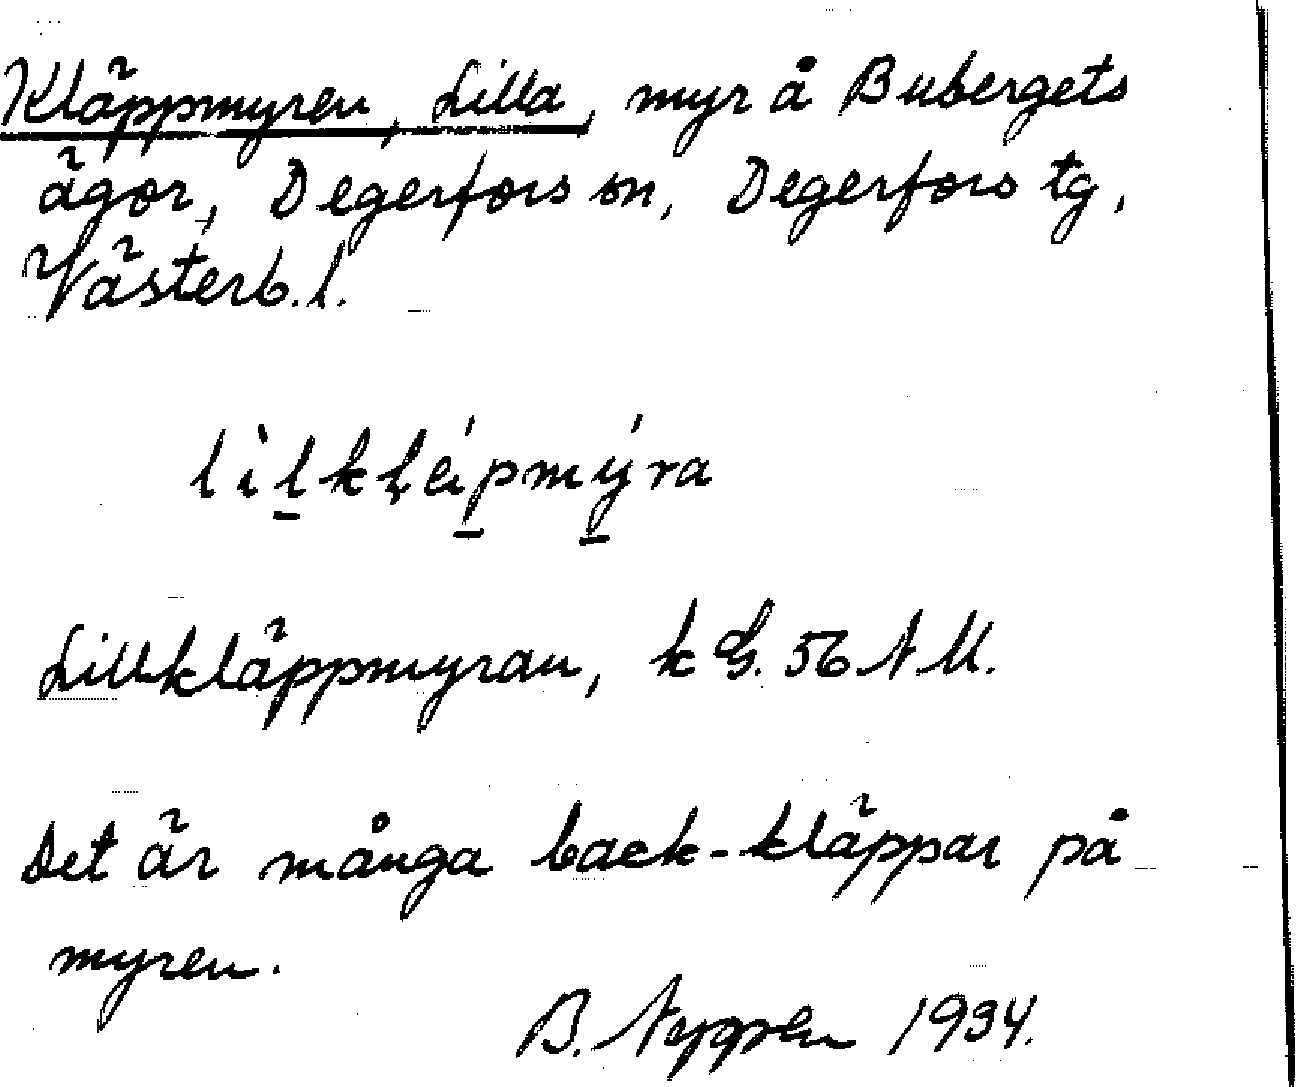 Kläppmyren, Lilla, myr å Bubergets
ägor, Degerfors sn, Degerfors tg,
Västerb. l.
Lillkläppmyran, k G. 56 N M.
Det är många back-kläppar på
myren.
B. 1934.